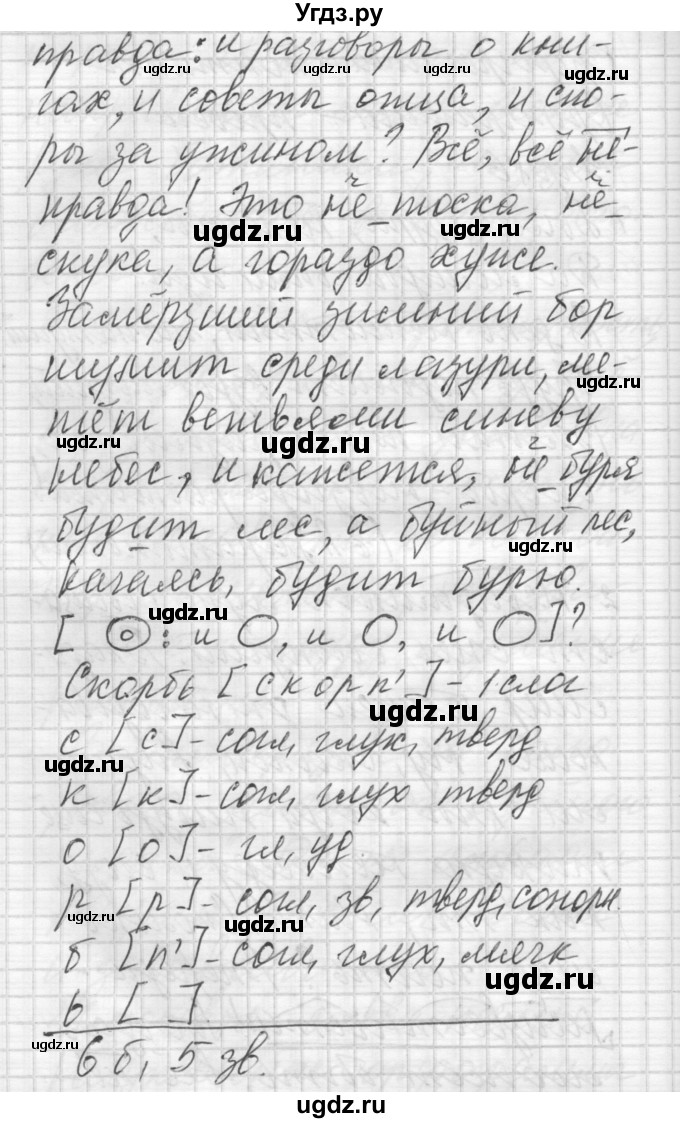 Угдз.ру
правда: и разговоры о кни-
гах, и советы отца, и спо-
ры за ужином? Всё, всё не-
правда! Это не тоска, не
скука, а гораздо хуже.
Замёрзший зимний бор
шумит среди лазури, ме-
тёт ветвями синеву
небес, и кажется, не буря
будит лес, а буйный лес,
качаясь, будит бурю.
[ ⊙: и О, и О, и О]?
Скорбь [скорп'] - 1 слог
с [с] - согл, глух, тверд
к [к] - согл, глух тверд
о [о] - гл, уд.
р [р] - согл, зв, тверд, сонорн.
б [п'] - согл, глух, мягк
ь [ ]
6 б, 5 зв.
ugdz.ru